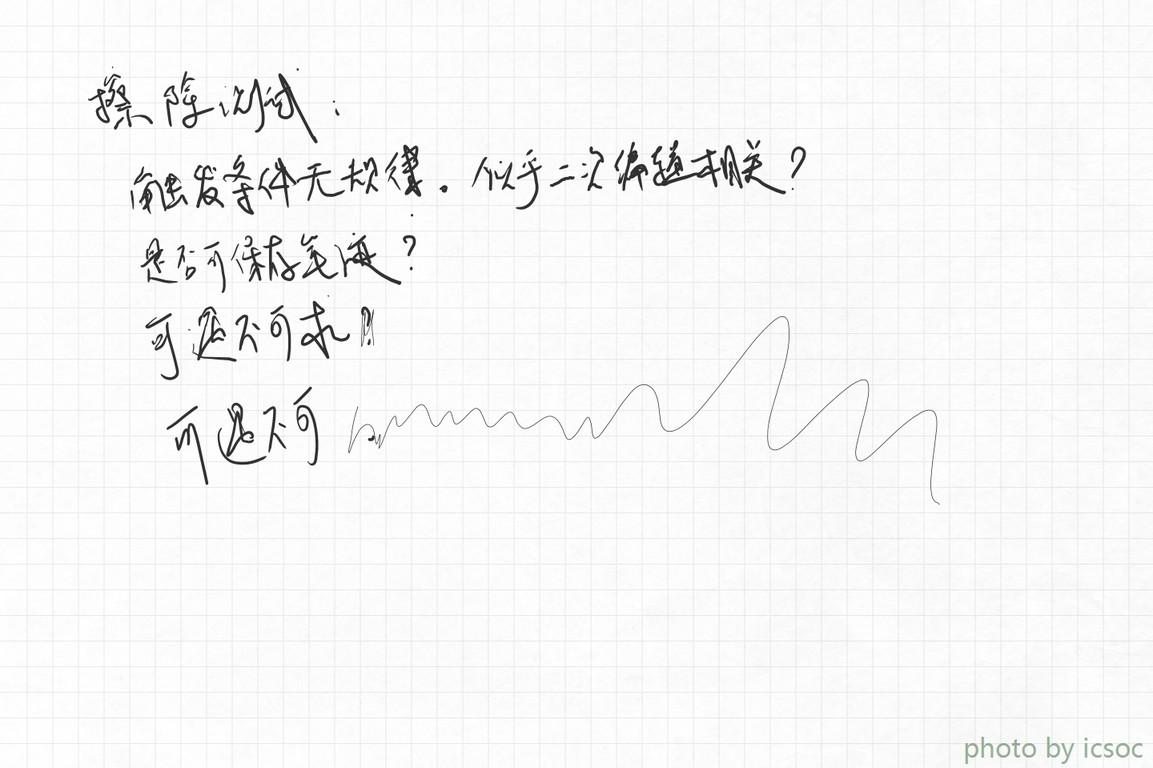 擦除测试：
触发条件无规律。似乎二次编辑相关？
是否可保存笔迹？
可遇不可求！
可遇不可
photo by icsoc